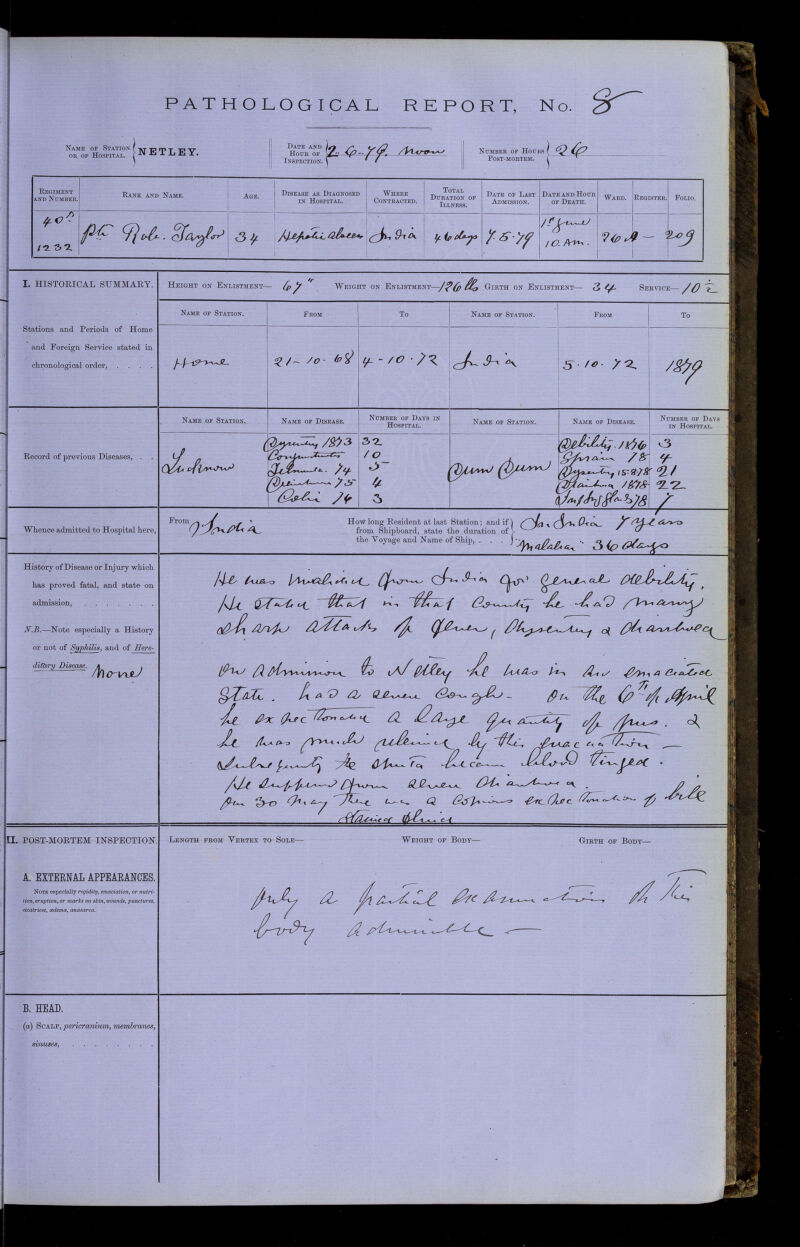 PATHOLOGICAL REPORT, No. 8
NAME OF STATION OR OF HOSPITAL. } NETLEY.
DATE AND HOUR OF INSPECTION. } 2. 6. 79. Noon
NUMBER OF HOURS POST-MORTEM. } 26
REGIMENT AND NUMBER. RANK AND NAME. AGE. DISEASE AS DIAGNOSED IN HOSPITAL. WHERE CONTRACTED. TOTAL DURATION OF ILLNESS. DATE OF LAST ADMISSION. DATE AND HOUR OF DEATH. WARD. REGISTER. FOLIO.
40th 1232 Pte Robt. Taylor 34 Hepatic abscess In India 46 days 7-5-79 1st June 10 A.m. 26 A — 209
I. HISTORICAL SUMMARY.
HEIGHT ON ENLISTMENT— 67" WEIGHT ON ENLISTMENT— 126 lbs GIRTH ON ENLISTMENT— 34 SERVICE— 10
Stations and Periods of Home and Foreign Service stated in chronological order, . . . .
NAME OF STATION. FROM TO NAME OF STATION. FROM TO
Home 21-10-68 4-10-72 India 5-10-72 1879
Record of previous Diseases, . .
NAME OF STATION. NAME OF DISEASE. NUMBER OF DAYS IN HOSPITAL. NAME OF STATION. NAME OF DISEASE. NUMBER OF DAYS IN HOSPITAL.
Lucknow
Dysentery 1873 32
10
74 5
75 4
Colic 76 3
Dum Dum
Debility 1876 3
Sprain 78 4
Dysentery 15-8-78 21
Diarrhoea 1878 22
78 7
Whence admitted to Hospital here,
From India
How long Resident at last Station; and if from Shipboard, state the duration of the Voyage and Name of Ship, . . . }
In India 7 years
"Malabar" 36 days
History of Disease or Injury which has proved fatal, and state on admission, . . . . . . .
N.B.—Note especially a History or not of Syphilis, and of Hereditary Disease.
None
He was invalided from India for general debility,
He stated that in that Country he had many
sharp attacks of fever, dysentery & diarrhoea
On admission to Netley he was in an emaciated
State. had a severe Cough- On the 6th of April
he expectorated a large quantity of pus. &
he was much relieved by this evacuation —
Subsequently the sputa became blood tinged.
He suffered from severe diarrhoea.
On 30 May there was a Copious expectoration of bile
stained fluid
II. POST-MORTEM INSPECTION.
LENGTH FROM VERTEX TO SOLE— WEIGHT OF BODY— GIRTH OF BODY—
A. EXTERNAL APPEARANCES.
NOTE especially rigidity, emaciation, or nutrition, eruption, or marks on skin, wounds, punctures, cicatrices, œdema, anasarca.
Only a partial examination of this
body admissible —
B. HEAD.
(a) SCALP, pericranium, membranes, sinuses, . . . . . . . .